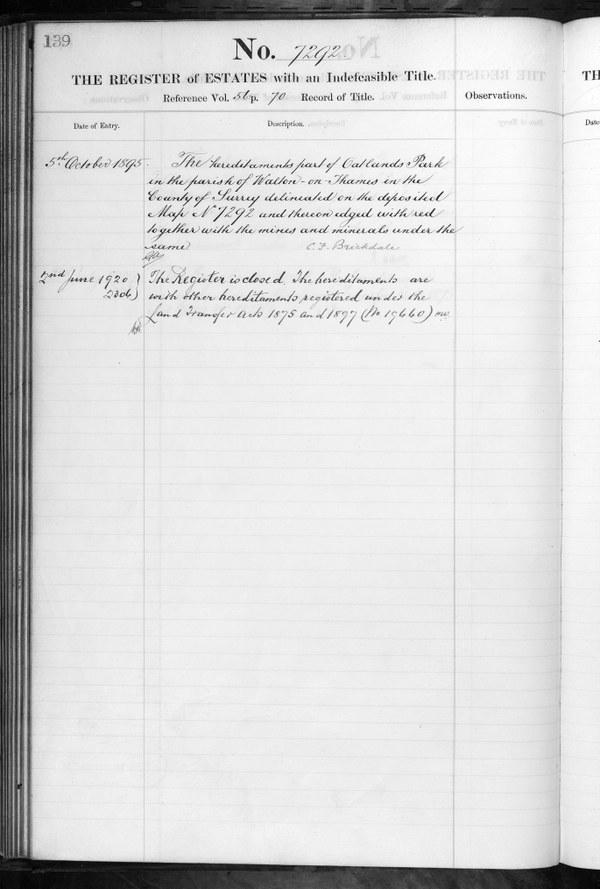 139
No. 7292
THE REGISTER of ESTATES with an Indefeasible Title.
Reference Vol. 56 p. 70 Record of Title.
Observations.
Date of Entry.
Description.
5th October 1895.
The hereditaments part of Oatlands Park
in the parish of Walton-on-Thames in the
County of Surrey delineated on the deposited
Map No 7292 and thereon edged with red
together with the mines and minerals under the
same
C. F. Brickdale
2nd June 1920 }
2306 )
The Register is closed. The hereditaments are
with other hereditaments registered under the
Land Transfer Acts 1875 and 1897 (No 19660)
TH
Date